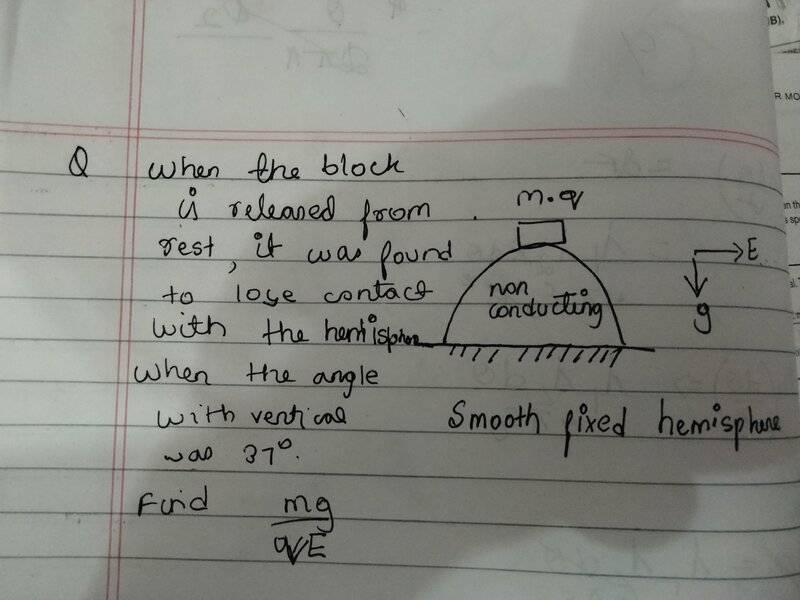 Q when the block
is released from
rest, it was found
to lose contact
with the hemisphere
when the angle
with vertical
was 37°.
Find mg
qE
m.q
non
conducting
E
g
Smooth fixed hemisphere
B),
R MO